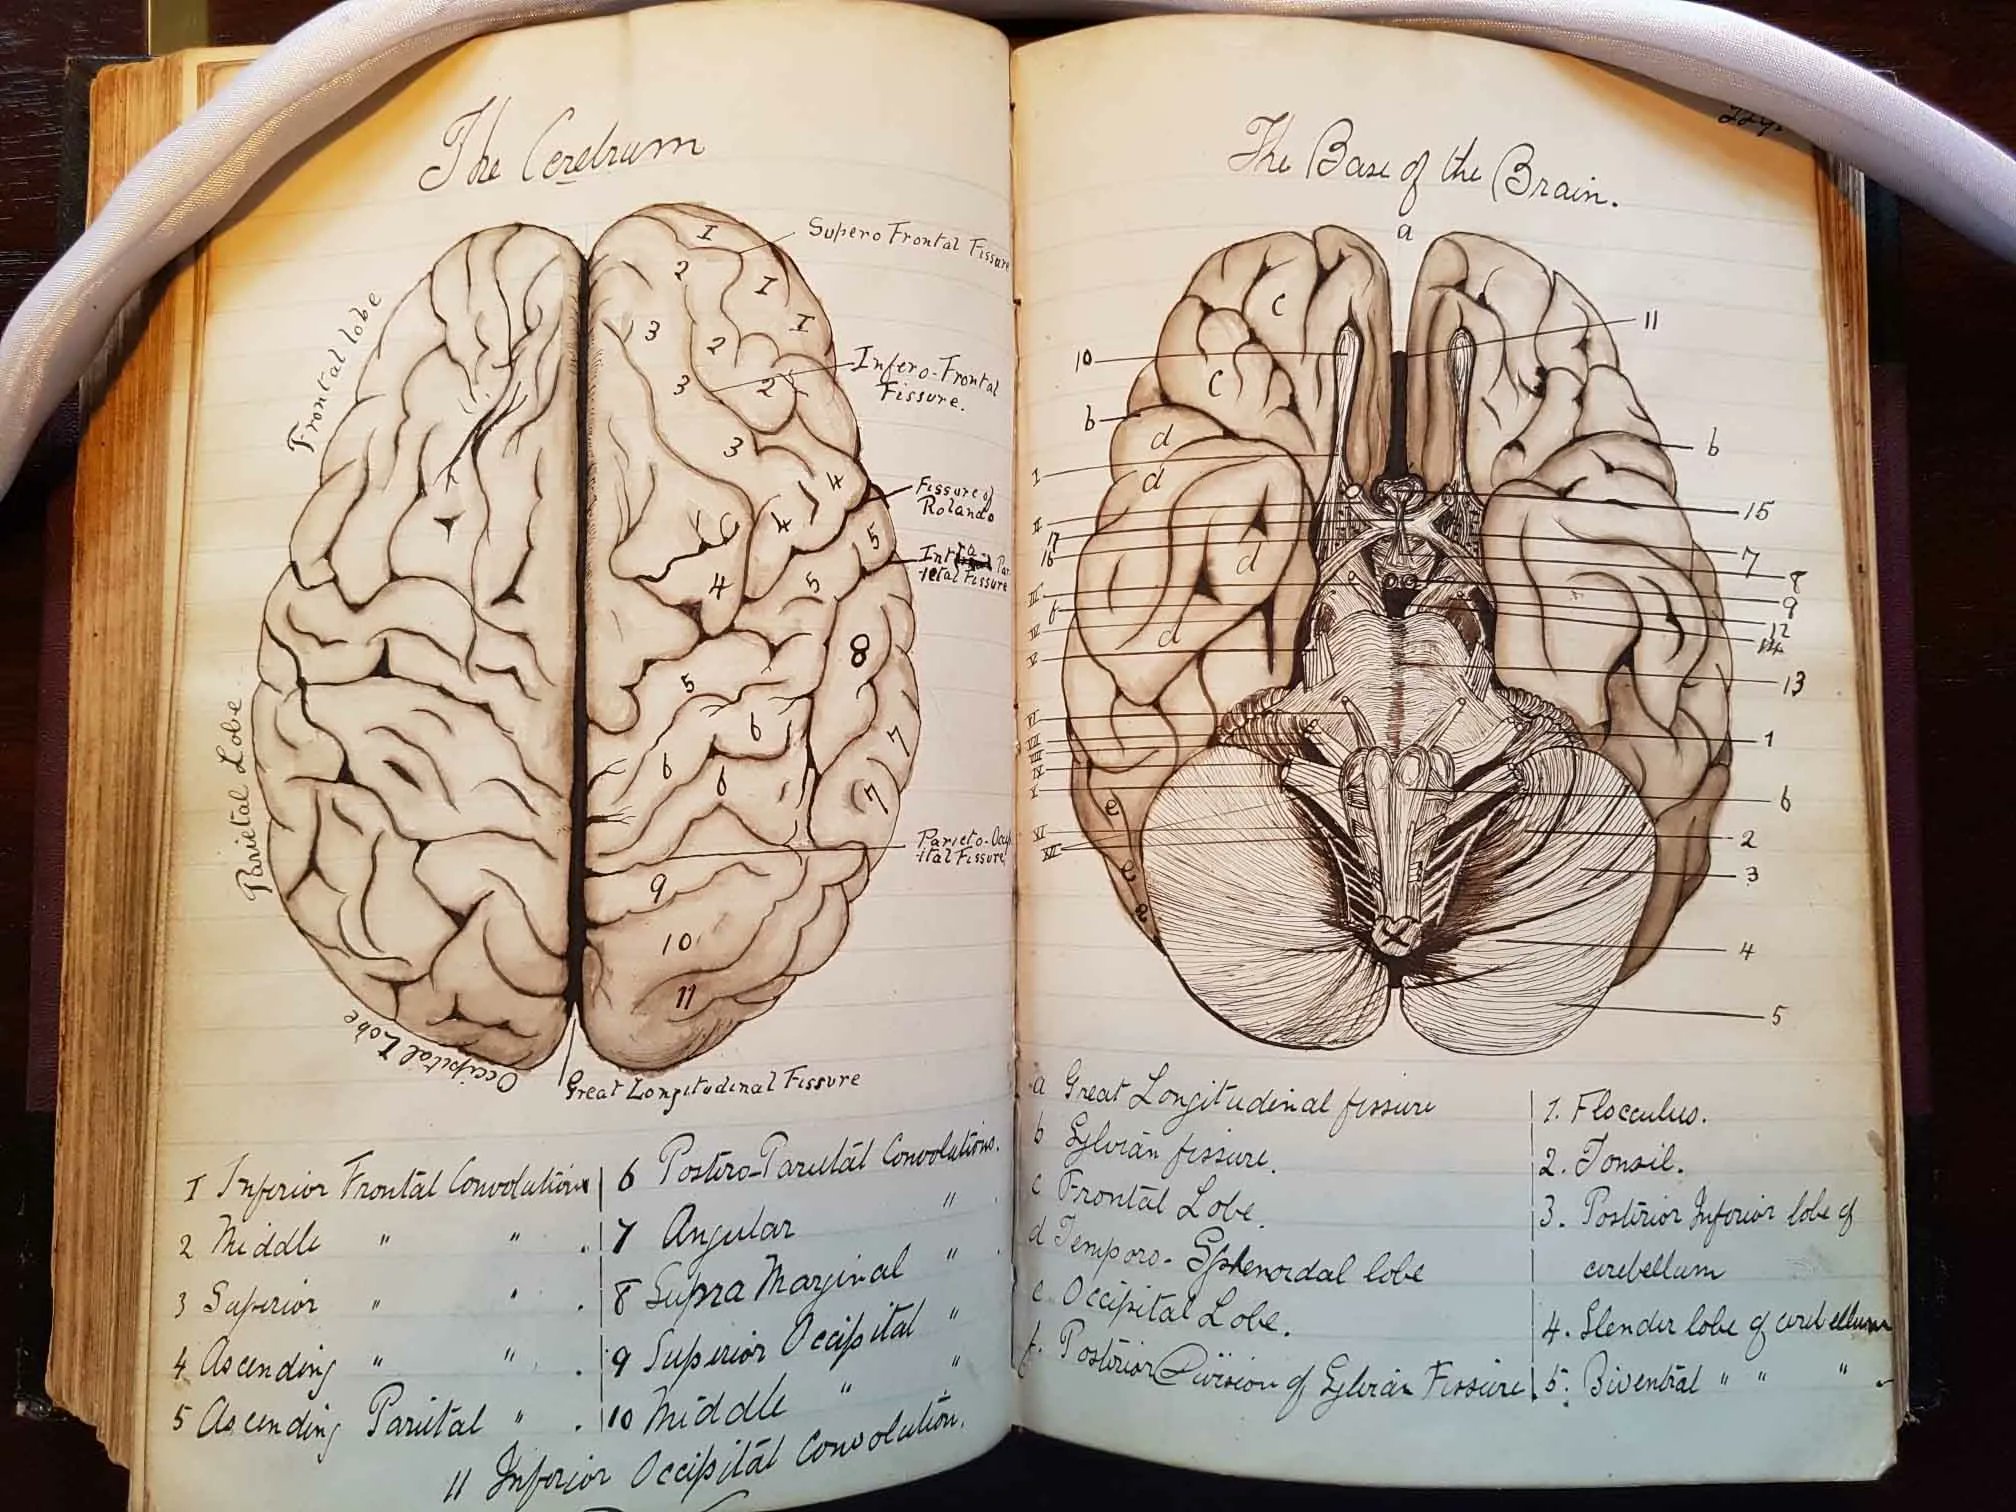 The Cerebrum
Supero Frontal Fissure
Frontal lobe
Infero-Frontal
Fissure.
Fissure of
Rolando
Intra Par
ietal Fissure
Parietal Lobe
Parieto-Occip
ital Fissure
Occipital Lobe
Great Longitudinal Fissure
I
2
I
3
2
I
3
2
3
4
4
5
4
5
8
5
6
7
6
6
7
9
10
11
1 Inferior Frontal Convolution
2 Middle " " .
3 Superior " " .
4 Ascending " " .
5 Ascending Parietal " .
6 Postero-Parietal Convolutions.
7 Angular " .
8 Supra Marginal " .
9 Superior Occipital "
10 Middle " "
11 Inferior Occipital Convolution.
The Base of the Brain.
a
c
11
10
c
b
d
b
I
d
15
II
17
16
7
d
8
III
9
f
12
IV
14
d
V
13
VI
1
VII
VIII
IX
X
6
e
2
e
3
e
4
5
a Great Longitudinal fissure
b Sylvian fissure.
c Frontal Lobe.
d Temporo-Sphenoidal lobe
e Occipital Lobe.
f. Posterior Division of Sylvian Fissure
1. Flocculus.
2. Tonsil.
3. Posterior Inferior lobe of
cerebellum
4. Slender lobe of cerebellum
5. Biventral " " "